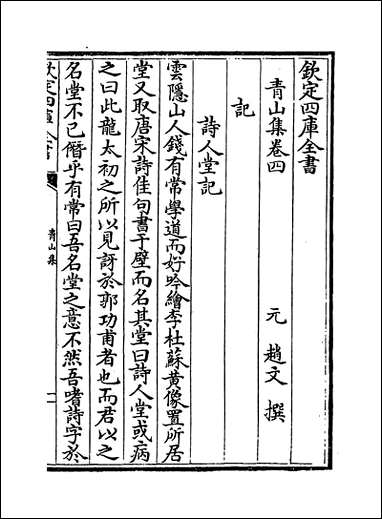 欽定四庫全書
青山集卷四
元 趙文 撰
記
詩人堂記
雲隱山人錢有常學道而好吟繪李杜蘇黃像置所居
堂又取唐宋詩佳句書于壁而名其堂曰詩人堂或病
之曰此龍太初之所以見訝於郭功甫者也而君以之
名堂不已僭乎有常曰吾名堂之意不然吾嗜詩字於
欽定四庫全書
青山集
一